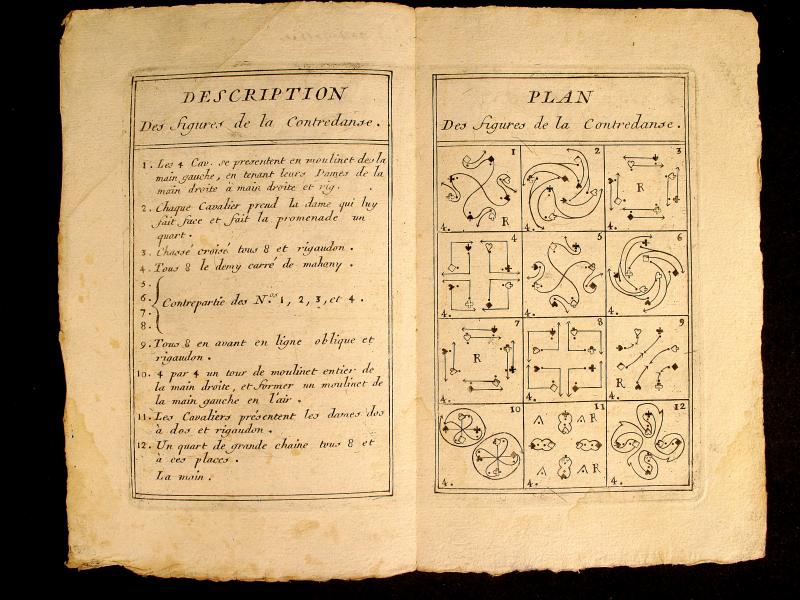 DESCRIPTION
Des figures de la Contredanse.
1. Les 4 Cav. se presentent en moulinet de la
main gauche, en tenant leurs Dames de la
main droite à main droite et rig.
2. Chaque Cavalier prend la dame qui luy
fait face et fait la promenade un
quart.
3. Chassé croisé tous 8 et rigaudon.
4. Tous 8 le demy carré de mahony.
5.
6. Contrepartie des N.os 1, 2, 3, et 4.
7.
8.
9. Tous 8 en avant en ligne oblique et
rigaudon.
10. 4 par 4 un tour de moulinet entier de
la main droite, et former un moulinet de
la main gauche en l'air.
11. Les Cavaliers présentent les dames dos
à dos et rigaudon.
12. Un quart de grande chaine tous 8 et
à ces places.
La main.
PLAN
Des figures de la Contredanse.
1 2 3
R
R
4. 4. 4.
4 5 6
4. 4. 4.
7 8 9
R
R
4. 4. 4.
10 11 12
A A R
A A R
4. 4. 4.